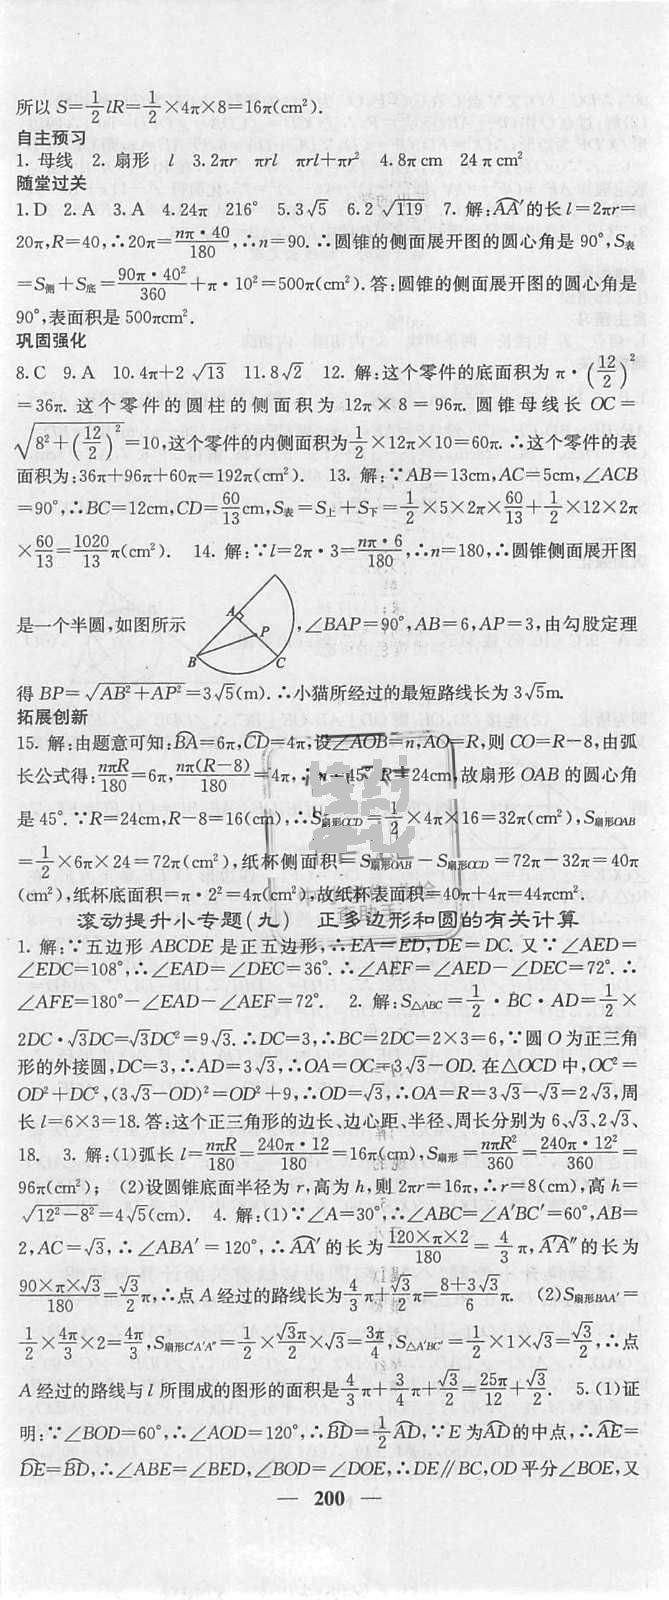 所以 S=1/2 lR=1/2×4π×8=16π(cm²).
自主预习
1. 母线 2. 扇形 l 3. 2πr πrl πrl+πr² 4. 8π cm 24 π cm²
随堂过关
1. D 2. A 3. A 4. 24π 216° 5. 3√5 6. 2 √119 7. 解:AA′的长 l=2πr=
20π,R=40,∴20π=nπ·40/180,∴n=90.∴圆锥的侧面展开图的圆心角是 90°,S表
=S侧+S底=90π·40²/360+π·10²=500π(cm²).答:圆锥的侧面展开图的圆心角是
90°,表面积是 500πcm².
巩固强化
8. C 9. A 10. 4π+2 √13 11. 8√2 12. 解:这个零件的底面积为 π·(12/2)²
=36π. 这个零件的圆柱的侧面积为 12π×8=96π. 圆锥母线长 OC=
√(8²+(12/2)²)=10,这个零件的内侧面积为1/2×12π×10=60π.∴这个零件的表
面积为:36π+96π+60π=192π(cm²). 13. 解:∵AB=13cm,AC=5cm,∠ACB
=90°,∴BC=12cm,CD=60/13cm,S表=S上+S下=1/2×5×2π×60/13+1/2×12×2π
×60/13=1020/13π(cm²). 14. 解:∵l=2π·3=nπ·6/180,∴n=180,∴圆锥侧面展开图
是一个半圆,如图所示 A P B C ,∠BAP=90°,AB=6,AP=3,由勾股定理
得 BP=√(AB²+AP²)=3√5(m).∴小猫所经过的最短路线长为 3√5m.
拓展创新
15. 解:由题意可知:BA=6π,CD=4π,设∠AOB=n,AO=R,则 CO=R-8,由弧
长公式得:nπR/180=6π,nπ(R-8)/180=4π,∴n=45 R=24cm,故扇形 OAB 的圆心角
是 45°.∵R=24cm,R-8=16(cm),∴S扇形OCD=1/2×4π×16=32π(cm²),S扇形OAB
=1/2×6π×24=72π(cm²),纸杯侧面积=S扇形OAB-S扇形OCD=72π-32π=40π
(cm²),纸杯底面积=π·2²=4π(cm²),故纸杯表面积=40π+4π=44πcm².
滚动提升小专题(九) 正多边形和圆的有关计算
1. 解:∵五边形 ABCDE 是正五边形,∴EA=ED,DE=DC. 又∵∠AED=
∠EDC=108°,∴∠EAD=∠DEC=36°.∴∠AEF=∠AED-∠DEC=72°.∴
∠AFE=180°-∠EAD-∠AEF=72°. 2. 解:S△ABC=1/2·BC·AD=1/2×
2DC·√3DC=√3DC²=9√3.∴DC=3,∴BC=2DC=2×3=6,∵圆 O 为正三角
形的外接圆,DC=3,∴AD=3√3,∴OA=OC=3√3-OD. 在△OCD 中,OC²=
OD²+DC²,(3√3-OD)²=OD²+9,∴OD=√3,∴OA=R=3√3-√3=2√3,周
长 l=6×3=18.答:这个正三角形的边长、边心距、半径、周长分别为 6、√3、2√3、
18. 3. 解:(1)弧长 l=nπR/180=240π·12/180=16π(cm),S扇形=nπR²/360=240π·12²/360=
96π(cm²); (2)设圆锥底面半径为 r,高为 h,则 2πr=16π,∴r=8(cm),高 h=
√(12²-8²)=4√5(cm). 4. 解:(1)∵∠A=30°,∴∠ABC=∠A′BC′=60°,AB=
2,AC=√3,∴∠ABA′=120°,∴AA′的长为120×π×2/180=4/3π,A′A″的长为
90×π×√3/180=√3/2π,∴点 A 经过的路线长为4/3π+√3/2π=8+3√3/6π. (2)S扇形BAA′=
1/2×4π/3×2=4π/3,S扇形C′A′A″=1/2×√3π/2×√3=3π/4,S△A′BC′=1/2×1×√3=√3/2,∴点
A 经过的路线与 l 所围成的图形的面积是4/3π+3/4π+√3/2=25π/12+√3/2. 5. (1)证
明:∵∠BOD=60°,∴∠AOD=120°,∴BD=1/2AD,∵E 为AD的中点,∴AE=
DE=BD,∴∠ABE=∠BED,∠BOD=∠DOE,∴DE∥BC,OD 平分∠BOE,又
— 200 —